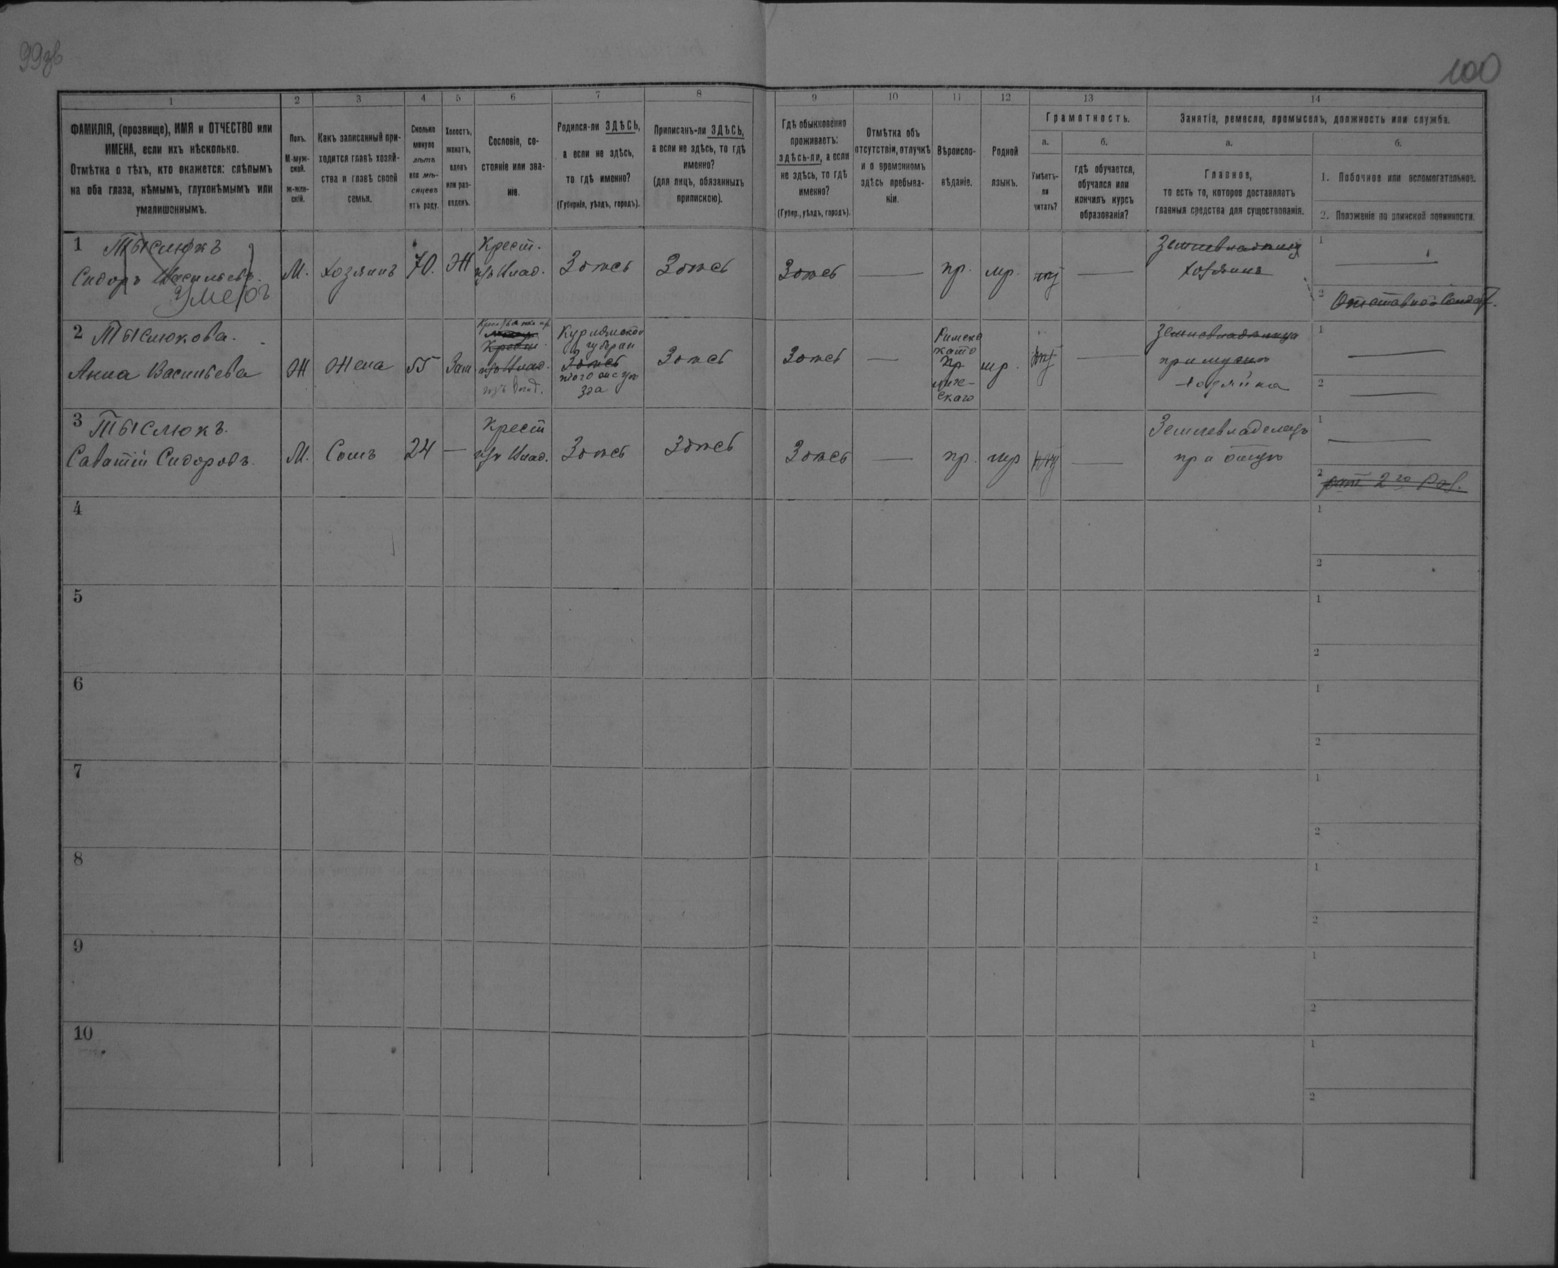 99об
100
1
2
3
4
5
6
7
8
9
10
11
12
13
14
ФАМИЛІЯ, (прозвище), ИМЯ и ОТЧЕСТВО или
ИМЕНА, если ихъ нѣсколько.
Отмѣтка о тѣхъ, кто окажется: слѣпымъ
на оба глаза, нѣмымъ, глухонѣмымъ или
умалишоннымъ.
Полъ.
М-муж-
ской.
ж-жен-
скій.
Какъ записанный при-
ходится главѣ хозяй-
ства и главѣ своей
семьи.
Сколько
минуло
лѣтъ
или мѣ-
сяцевъ
отъ роду.
Холостъ,
женатъ,
вдовъ
или раз-
веденъ.
Сословіе, со-
стояніе или зва-
ніе.
Родился-ли ЗДѢСЬ,
а если не здѣсь,
то гдѣ именно?
(Губернія, уѣздъ, городъ).
Приписанъ-ли ЗДѢСЬ,
а если не здѣсь, то гдѣ
именно?
(для лицъ, обязанныхъ
припискою).
Гдѣ обыкновенно
проживаетъ:
здѣсь-ли, а если
не здѣсь, то гдѣ
именно?
(Губер., уѣздъ, городъ).
Отмѣтка объ
отсутствіи, отлучкѣ
и о временномъ
здѣсь пребыва-
ніи.
Вѣроиспо-
вѣданіе.
Родной
языкъ.
Грамотность.
а.
Умѣетъ-
ли
читать?
б.
гдѣ обучается,
обучался или
кончилъ курсъ
образованія?
Занятія, ремесло, промыселъ, должность или служба.
а.
Главное,
то есть то, которое доставляетъ
главныя средства для существованія.
б.
1. Побочное или вспомогательное.
2. Положеніе по воинской повинности.
1
Тыслюкъ
Сидоръ Васильевъ
умеръ
М.
хозяинъ
70.
Ж
Крест.
изъ Влад.
Здѣсь
Здѣсь
Здѣсь
пр.
мр.
нѣт
Землевладѣлец
хозяинъ
1
2 Отставной Солдат.
2
Тыслюкова.
Анна Васильева
Ж
Жена
55
Зам
изъ Влад.
Здѣсь
Здѣсь
Здѣсь
Римско
като
пр
мр.
нѣт
Землевладѣлица
при мужѣ
хозяйка
1
2
3
Тыслюкъ.
Саватій Сидоровъ.
М.
Сынъ
24
Крест
изъ Влад.
Здѣсь
Здѣсь
Здѣсь
пр.
мр
нѣт
Землевладѣлецъ
при отцѣ
1
2 рат. 2го Раз.
4
1
2
5
1
2
6
1
2
7
1
2
8
1
2
9
1
2
10
1
2